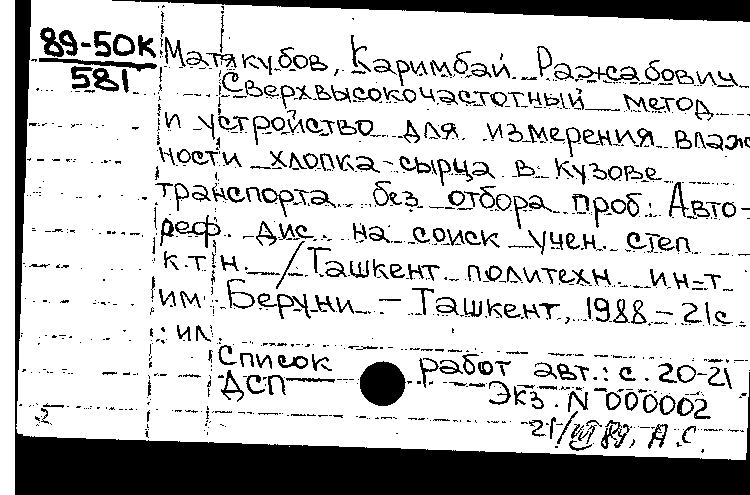 89-50К
581
Матякубов, Каримбай Ражабович
Сверхвысокочастотный метод
и устройство для измерения влаж
ности хлопка-сырца в кузове
транспорта без отбора проб: Авто-
реф. дис. на соиск учен. степ
к.т.н. / Ташкент. политехн. ин-т
им Беруни. - Ташкент, 1988 - 21с.
: ил
Список работ авт.: с. 20-21
ДСП Экз. N 000002
21/VII 89, А.С.
2